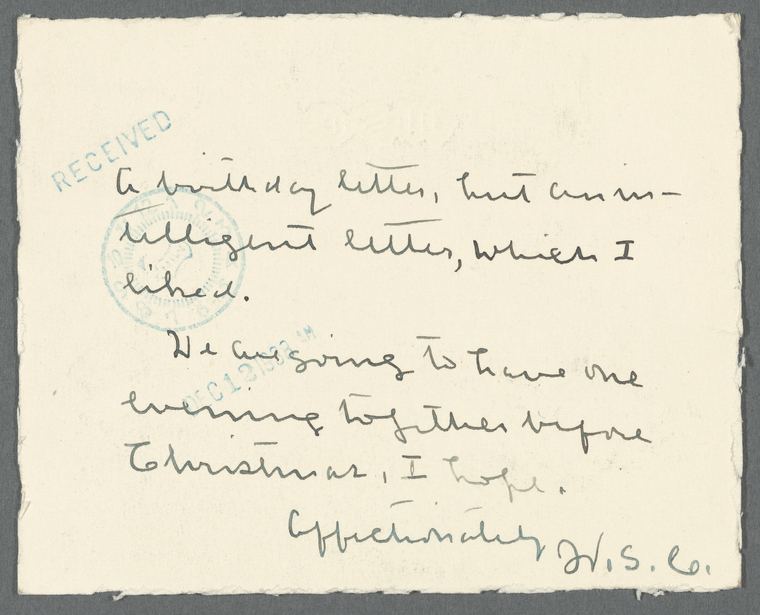 RECEIVED
a birthday letter, but an in-
telligent letter, which I
liked.
DEC 12 1932 AM
We are going to have one
evening together before
Christmas, I hope.
Affectionately W.S.C.